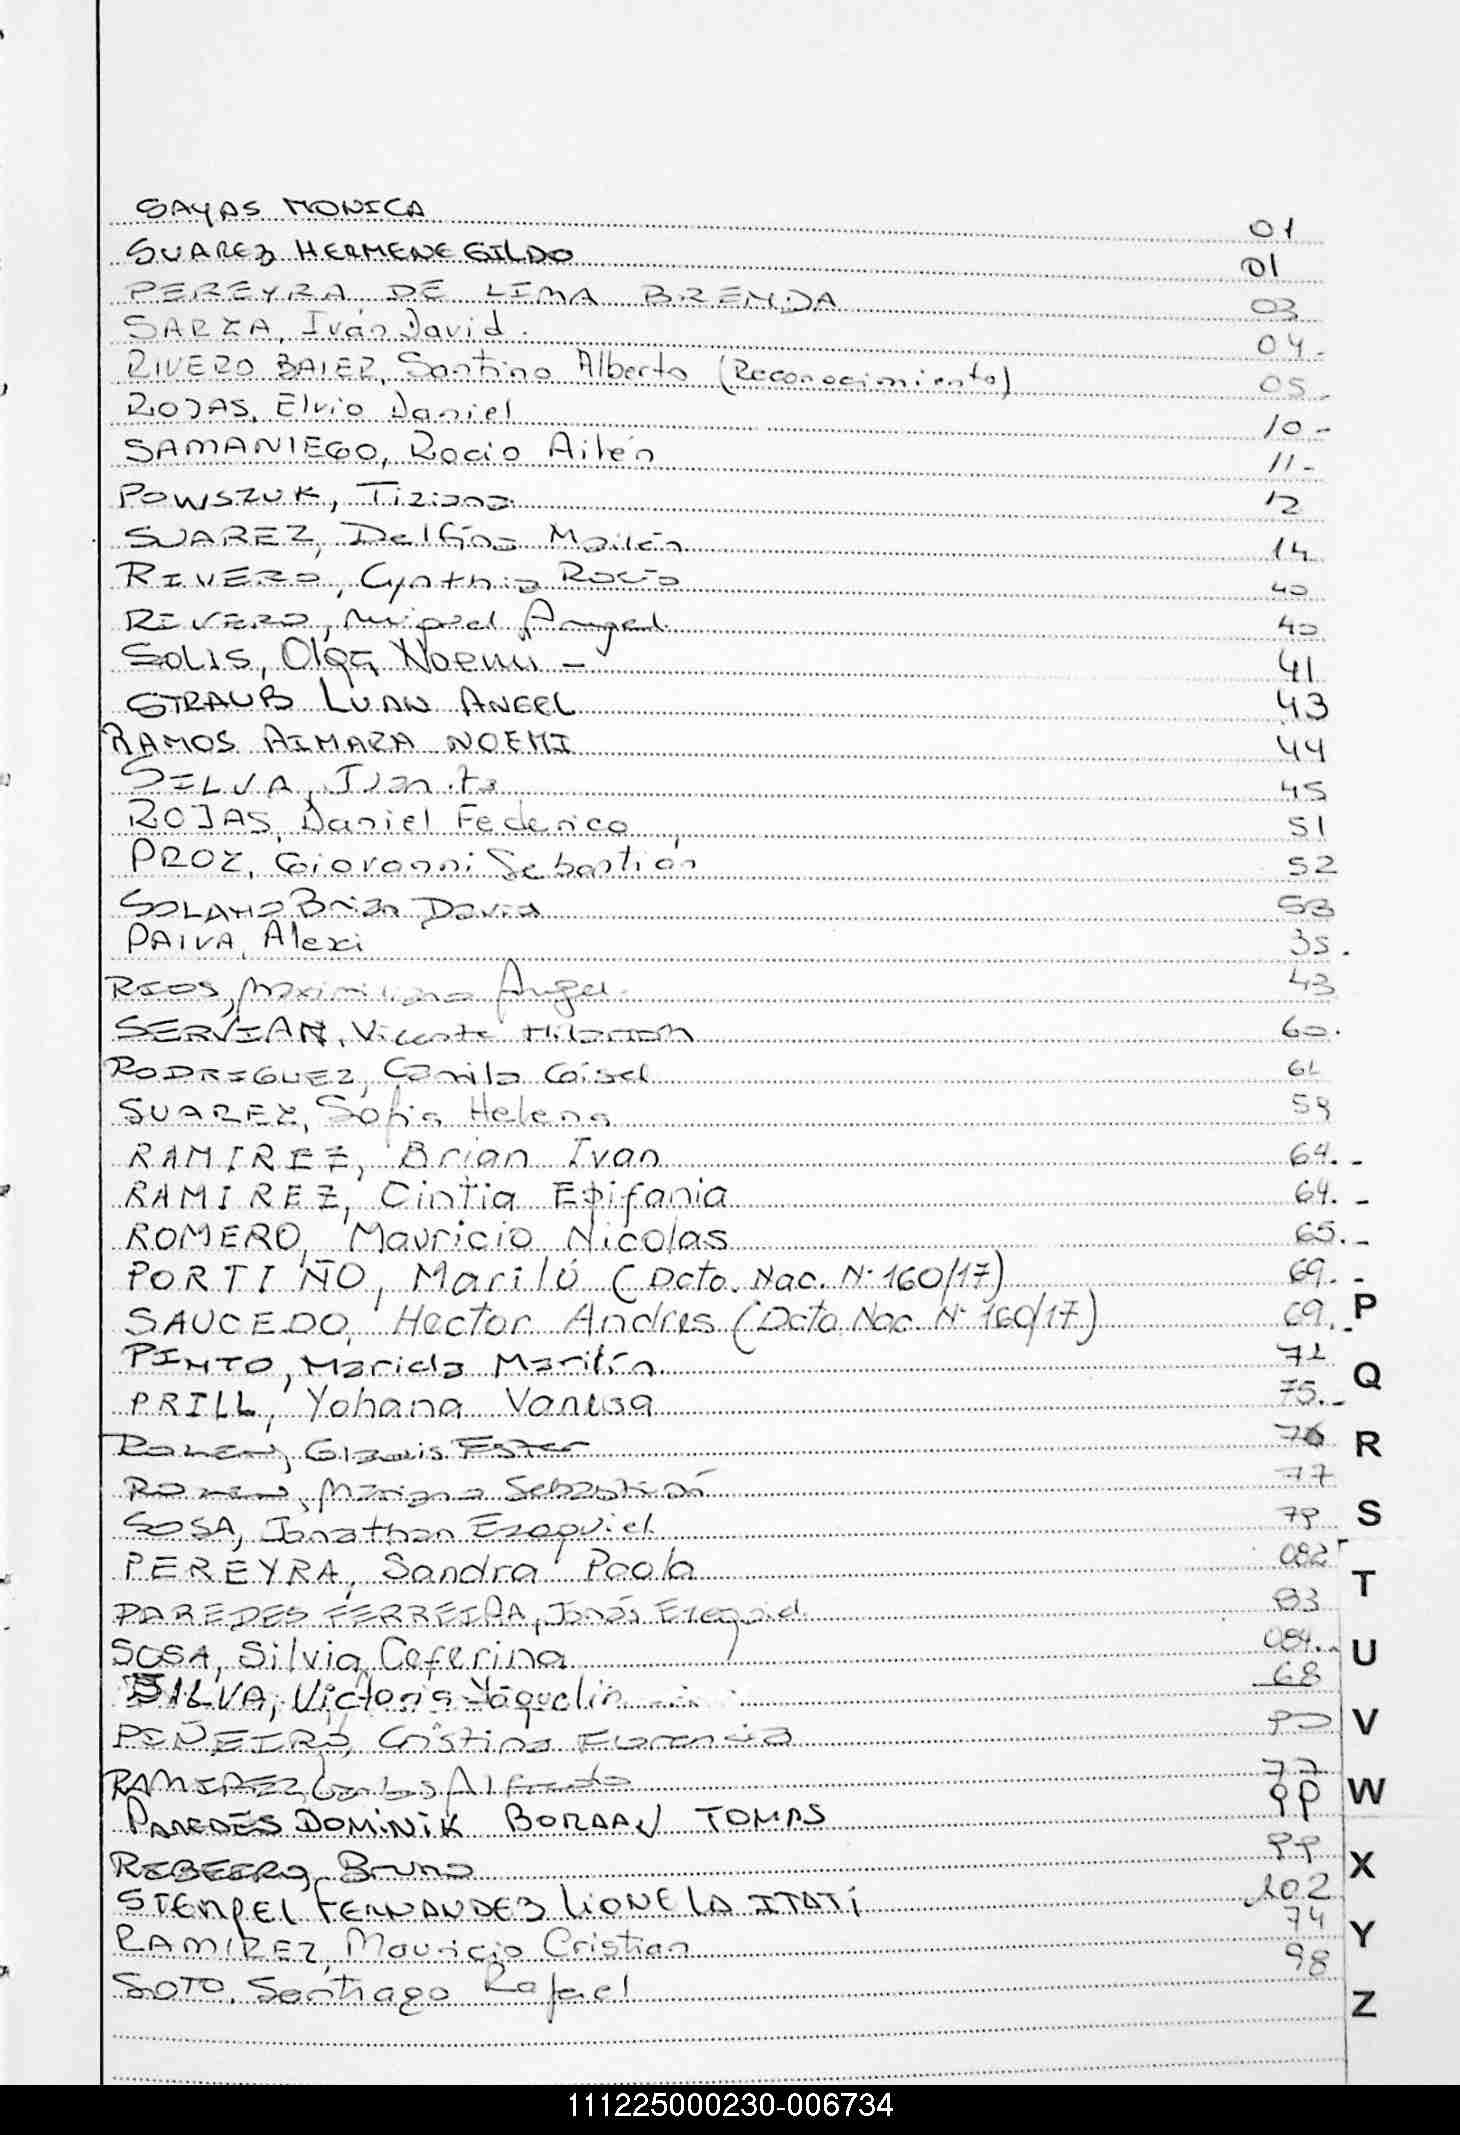 SAYAS MONICA 01
SUAREZ HERMENEGILDO 01
PEREYRA DE LIMA BRENDA 03
SARZA, Iván David. 04.
RIVERO BAIER, Santino Alberto (Reconocimiento) 05.
ROJAS, Elvio Daniel 10-
SAMANIEGO, Rocio Ailén 11-
POWSZUK, Tiziana 12
SUAREZ, Delfina Mailén 14
RIVERO, Cynthia Rocío 40
RIVERO, Miguel Angel 40
SOLIS, Olga Noemi - 41
STRAUB LUAN ANGEL 43
RAMOS AIMARA NOEMI 44
SILVA, Juanita 45
ROJAS, Daniel Federico 51
PROZ, Giovanni Sebastián 52
SOLANO Brian David 53
PAIVA, Alexi 35.
RIOS, Maximiliano Ángel 43
SERVIAN, Vicente Hilarion 60.
RODRIGUEZ, Camila Gisel 61
SUAREZ, Sofia Helena 59
RAMIREZ, Brian Ivan 64.-
RAMIREZ, Cintia Epifania 64.-
ROMERO, Mauricio Nicolas 65.-
PORTIÑO, Marilú (Dcto. Nac. N° 160/17) 69.-
SAUCEDO, Hector Andres (Dcto Nac. N° 160/17) 69.-
PINTO, Mariela Marilín 71
PRILL, Yohana Vanesa 75.-
Gladis Ester 76
Mariano Sebastián 77
SOSA, Jonathan Ezequiel 79
PEREYRA, Sandra Paola 082
PAREDES FERREIRA, Jonás Ezequiel 83
SOSA, Silvia Ceferina 084.-
SILVA, Victoria Yaquelin 68
PIÑEIRO, Cristina Florencia 90
RAMIREZ, Carlos Alfredo 77
PAREDES DOMINIK TOMAS 99
RIBEIRO, Bruno 99
STEMPEL FERNANDEZ LIONELA ITATÍ 102
RAMIREZ, Mauricio Cristian 74
SOTO, Santiago Rafael 98
P
Q
R
S
T
U
V
W
X
Y
Z
111225000230-006734